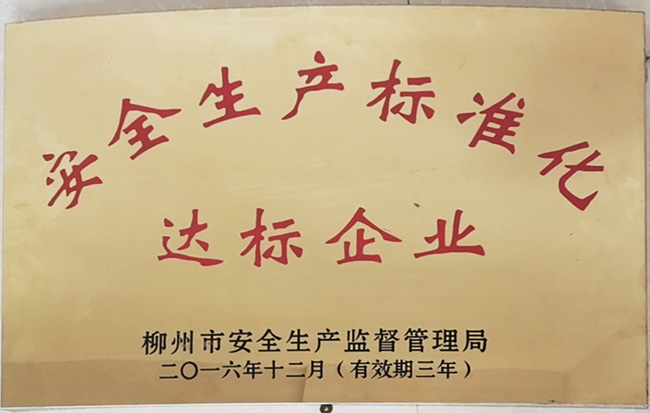 安全生产标准化
达标企业
柳州市安全生产监督管理局
二〇一六年十二月（有效期三年）